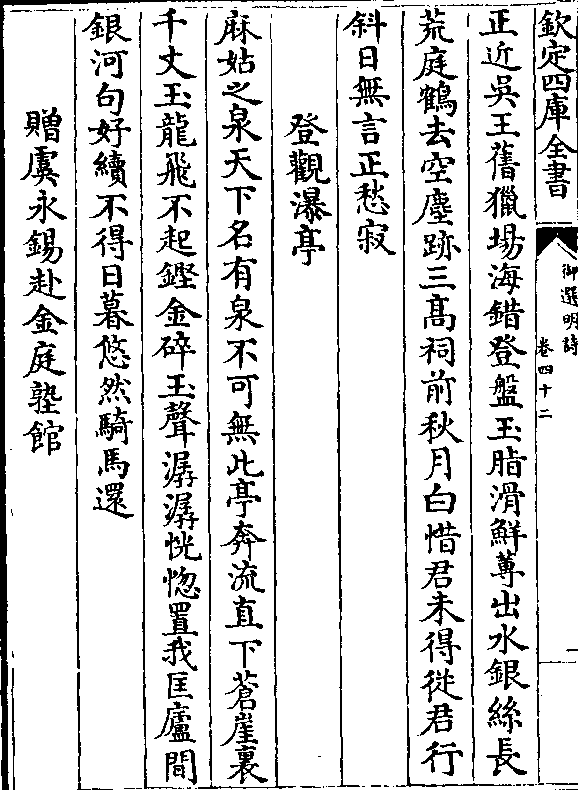 欽定四庫全書
御選明詩
卷四十二
正近吳王舊獵場海錯登盤玉脂滑鮮蓴出水銀絲長
荒庭鶴去空塵跡三高祠前秋月白惜君未得從君行
斜日無言正愁寂
登觀瀑亭
麻姑之泉天下名有泉不可無此亭奔流直下蒼崖裏
千丈玉龍飛不起鏗金碎玉聲潺潺恍惚置我匡廬間
銀河句好續不得日暮悠然騎馬還
贈虞永錫赴金庭塾館